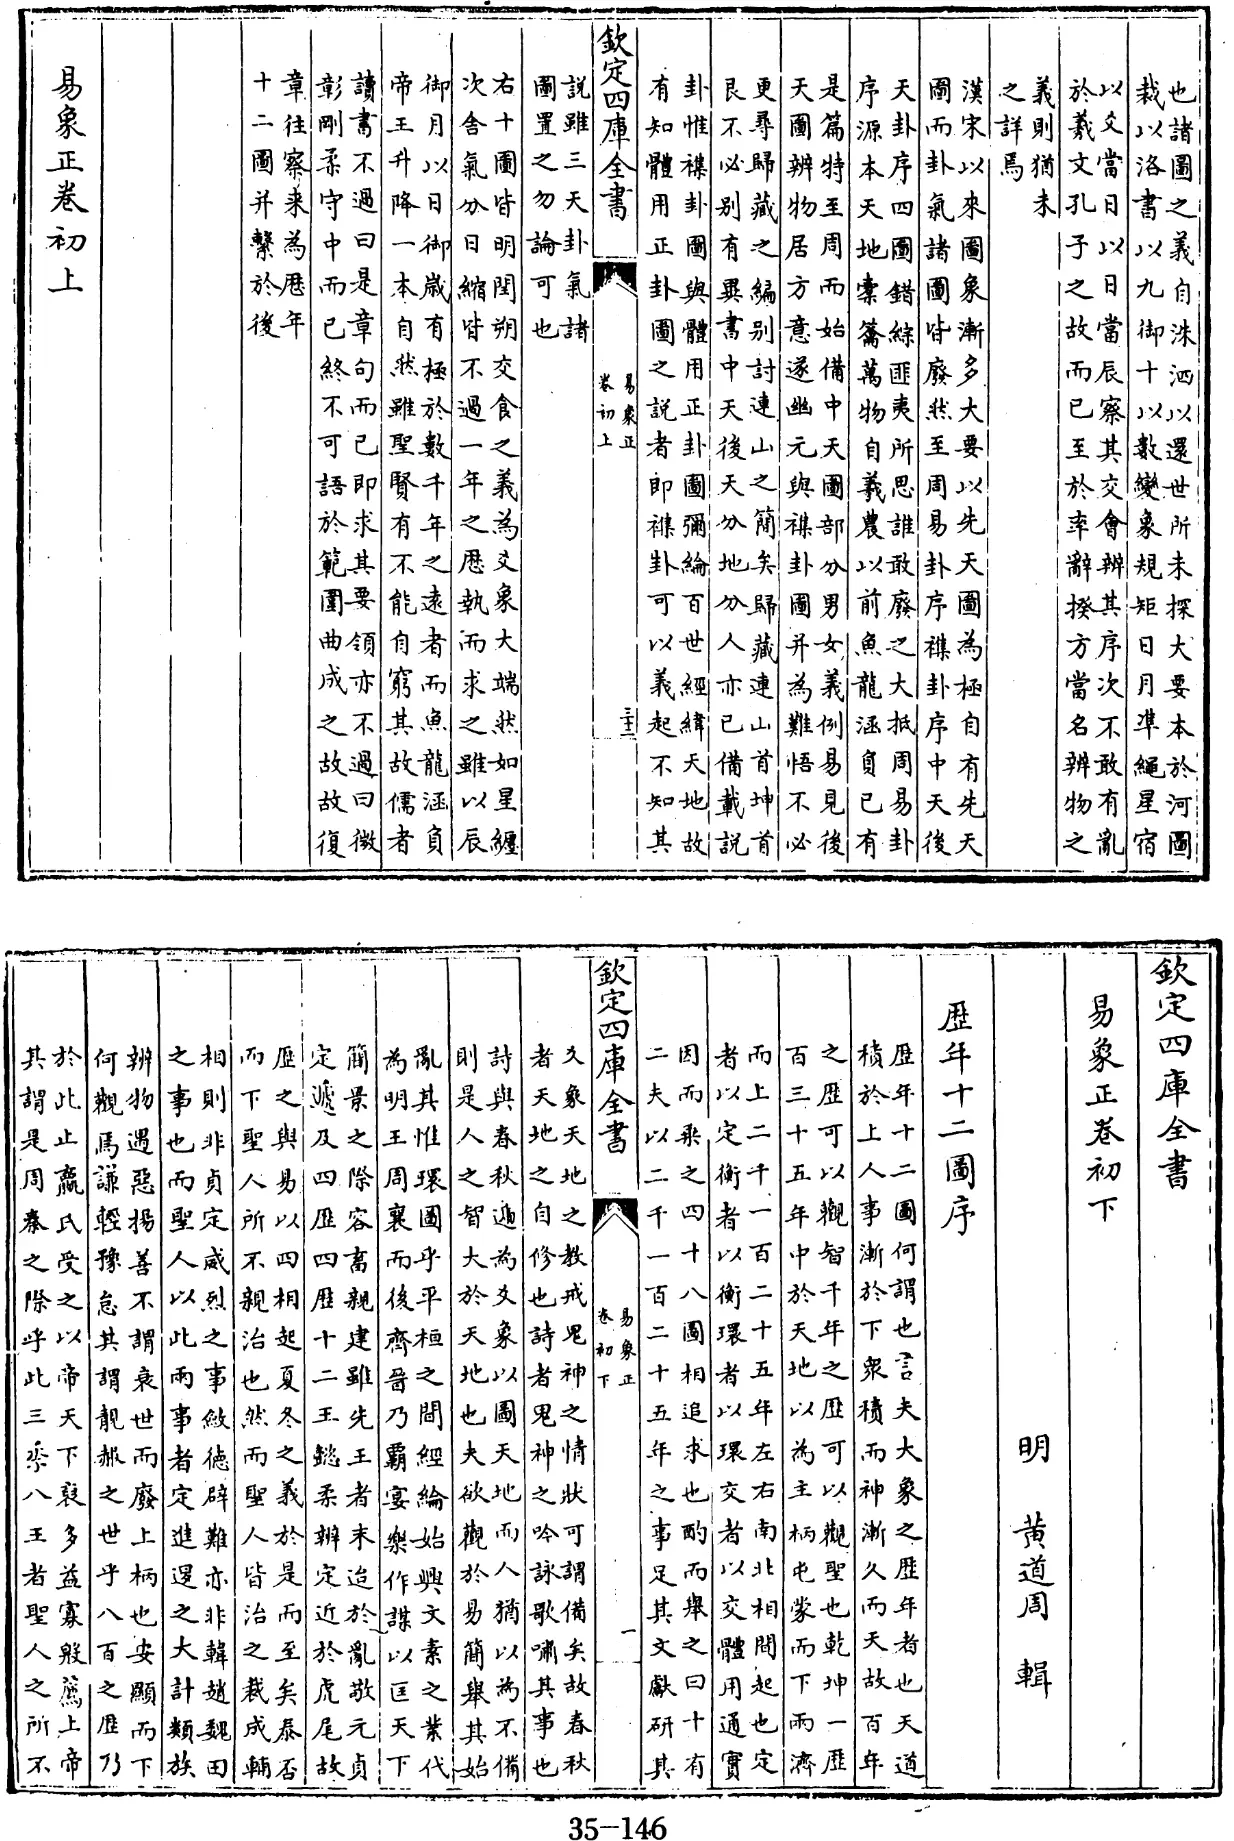 也諸圖之義自洙泗以還世所未探大要本於河圖
裁以洛書以九御十以數變象規矩日月準繩星宿
以爻當日以日當辰察其交會辨其序次不敢有亂
於羲文孔子之故而已至於率辭揆方當名辨物之
義則猶未
之詳焉
漢宋以來圖象漸多大要以先天圖為極自有先天
圖而卦氣諸圖皆廢然至周易卦序襍卦序中天後
天卦序四圖錯綜匪夷所思誰敢廢之大抵周易卦
序源本天地橐籥萬物自羲農以前魚龍涵負已有
是篇特至周而始備中天圖部分男女義例易見後
天圖辨物居方意遂幽元與襍卦圖并為難悟不必
更尋歸藏之編別討連山之簡矣歸藏連山首坤首
艮不必別有異書中天後天分地分人亦已備載說
卦惟襍卦圖與體用正卦圖彌綸百世經緯天地故
有知體用正卦圖之說者即襍卦可以義起不知其
欽定四庫全書
易象正
卷初上
三十三
說雖三天卦氣諸
圖置之勿論可也
右十圖皆明閏朔交食之義為爻象大端然如星纏
次舍氣分日縮皆不過一年之歴執而求之雖以辰
御月以日御歲有極於數千年之遠者而魚龍涵負
帝王升降一本自然雖聖賢有不能自窮其故儒者
讀書不過曰是章句而已即求其要領亦不過曰微
彰剛柔守中而已終不可語於範圍曲成之故故復
章往察來為歴年
十二圖并繫於後
易象正卷初上
欽定四庫全書
易象正卷初下
明 黃道周 輯
歴年十二圖序
歴年十二圖何謂也言夫大象之歴年者也天道
積於上人事漸於下衆積而神漸久而天故百年
之歴可以觀智千年之歴可以觀聖也乾坤一歴
百三十五年中於天地以為主柄屯蒙而下兩濟
而上二千一百二十五年左右南北相間起也定
者以定衡者以衡環者以環交者以交體用通實
因而乘之四十八圖相追求也酌而舉之曰十有
二夫以二千一百二十五年之事足其文獻研其
欽定四庫全書
易象正
卷初下
一
爻象天地之教戒鬼神之情狀可謂備矣故春秋
者天地之自修也詩者鬼神之吟詠歌嘯其事也
詩與春秋遁為爻象以圖天地而人猶以為不備
則是人之智大於天地也夫欲觀於易簡舉其始
亂其惟環圖乎平桓之間經綸始興文素之業代
為明王周襄而後齊晉乃霸宴樂作謀以匡天下
簡景之際容畜親建雖先王者未迨於亂敬元貞
定遞及四歴四歴十二王懿柔辨定近於虎尾故
歴之與易以四相起夏冬之義於是而至矣泰否
而下聖人所不親治也然而聖人皆治之裁成輔
相則非貞定威烈之事斂德辟難亦非韓趙魏田
之事也而聖人以此兩事者定進退之大計類族
辨物遏惡揚善不謂衰世而廢上柄也安顯而下
何觀焉謙輕豫怠其謂靚赧之世乎八百之歴乃
於此止嬴氏受之以帝天下裒多益寡殷薦上帝
其謂是周秦之際乎此三乘八王者聖人之所不
35-146